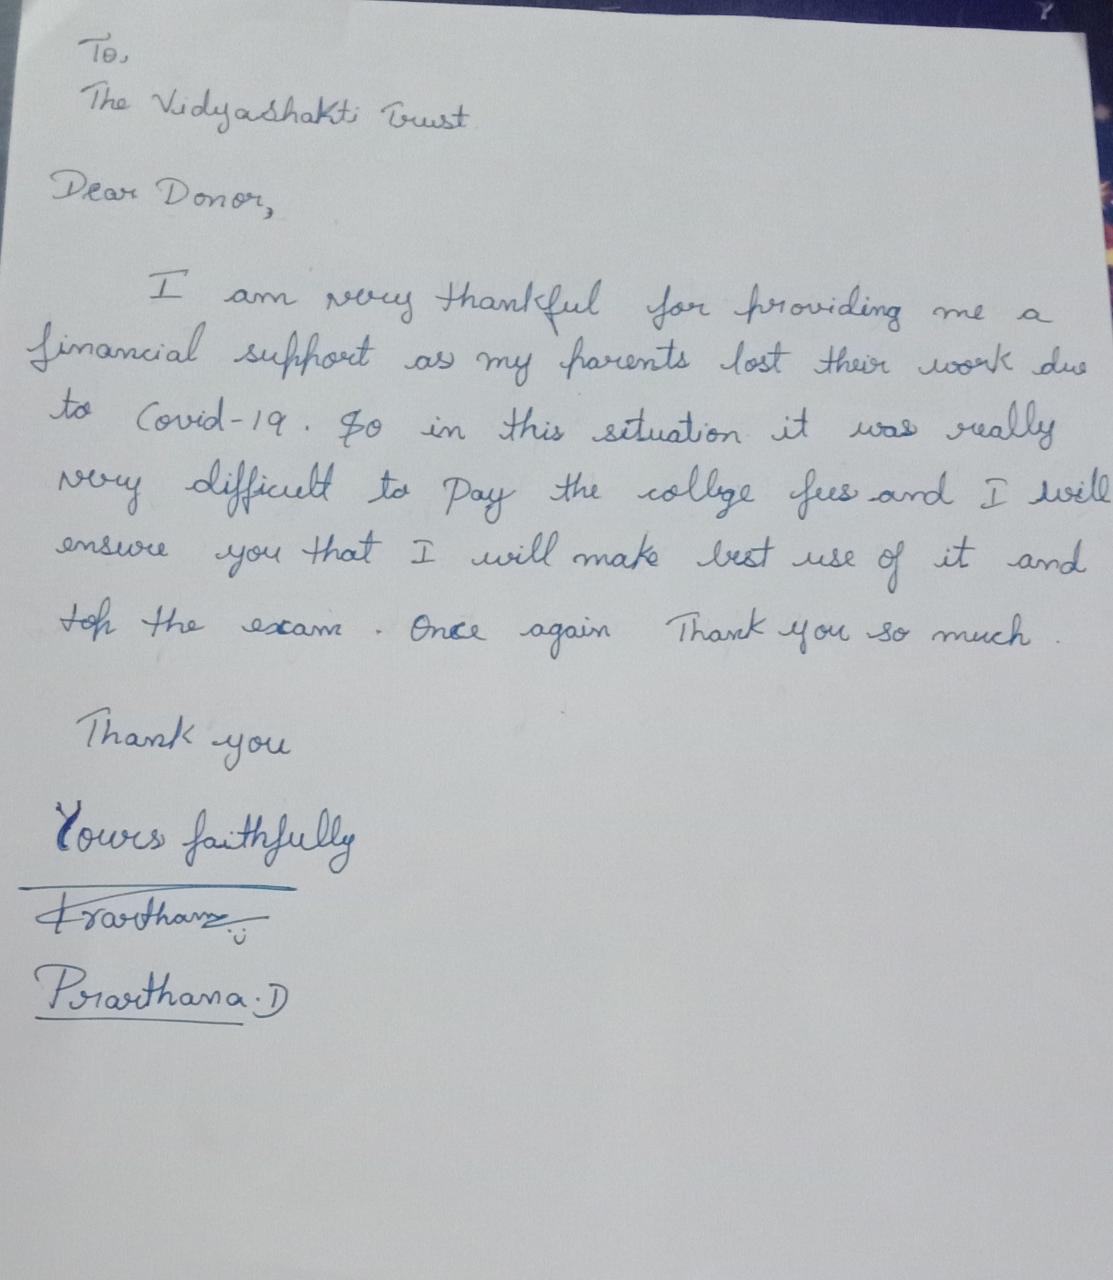 To,
The Vidyashakti Trust
Dear Donor,
I am very thankful for providing me a
financial support as my parents lost their work due
to Covid-19. So in this situation it was really
very difficult to Pay the collge fees and I will
ensure you that I will make best use of it and
top the exam. Once again Thank you so much.
Thank you
Yours faithfully
Prarthana
Prarthana.D